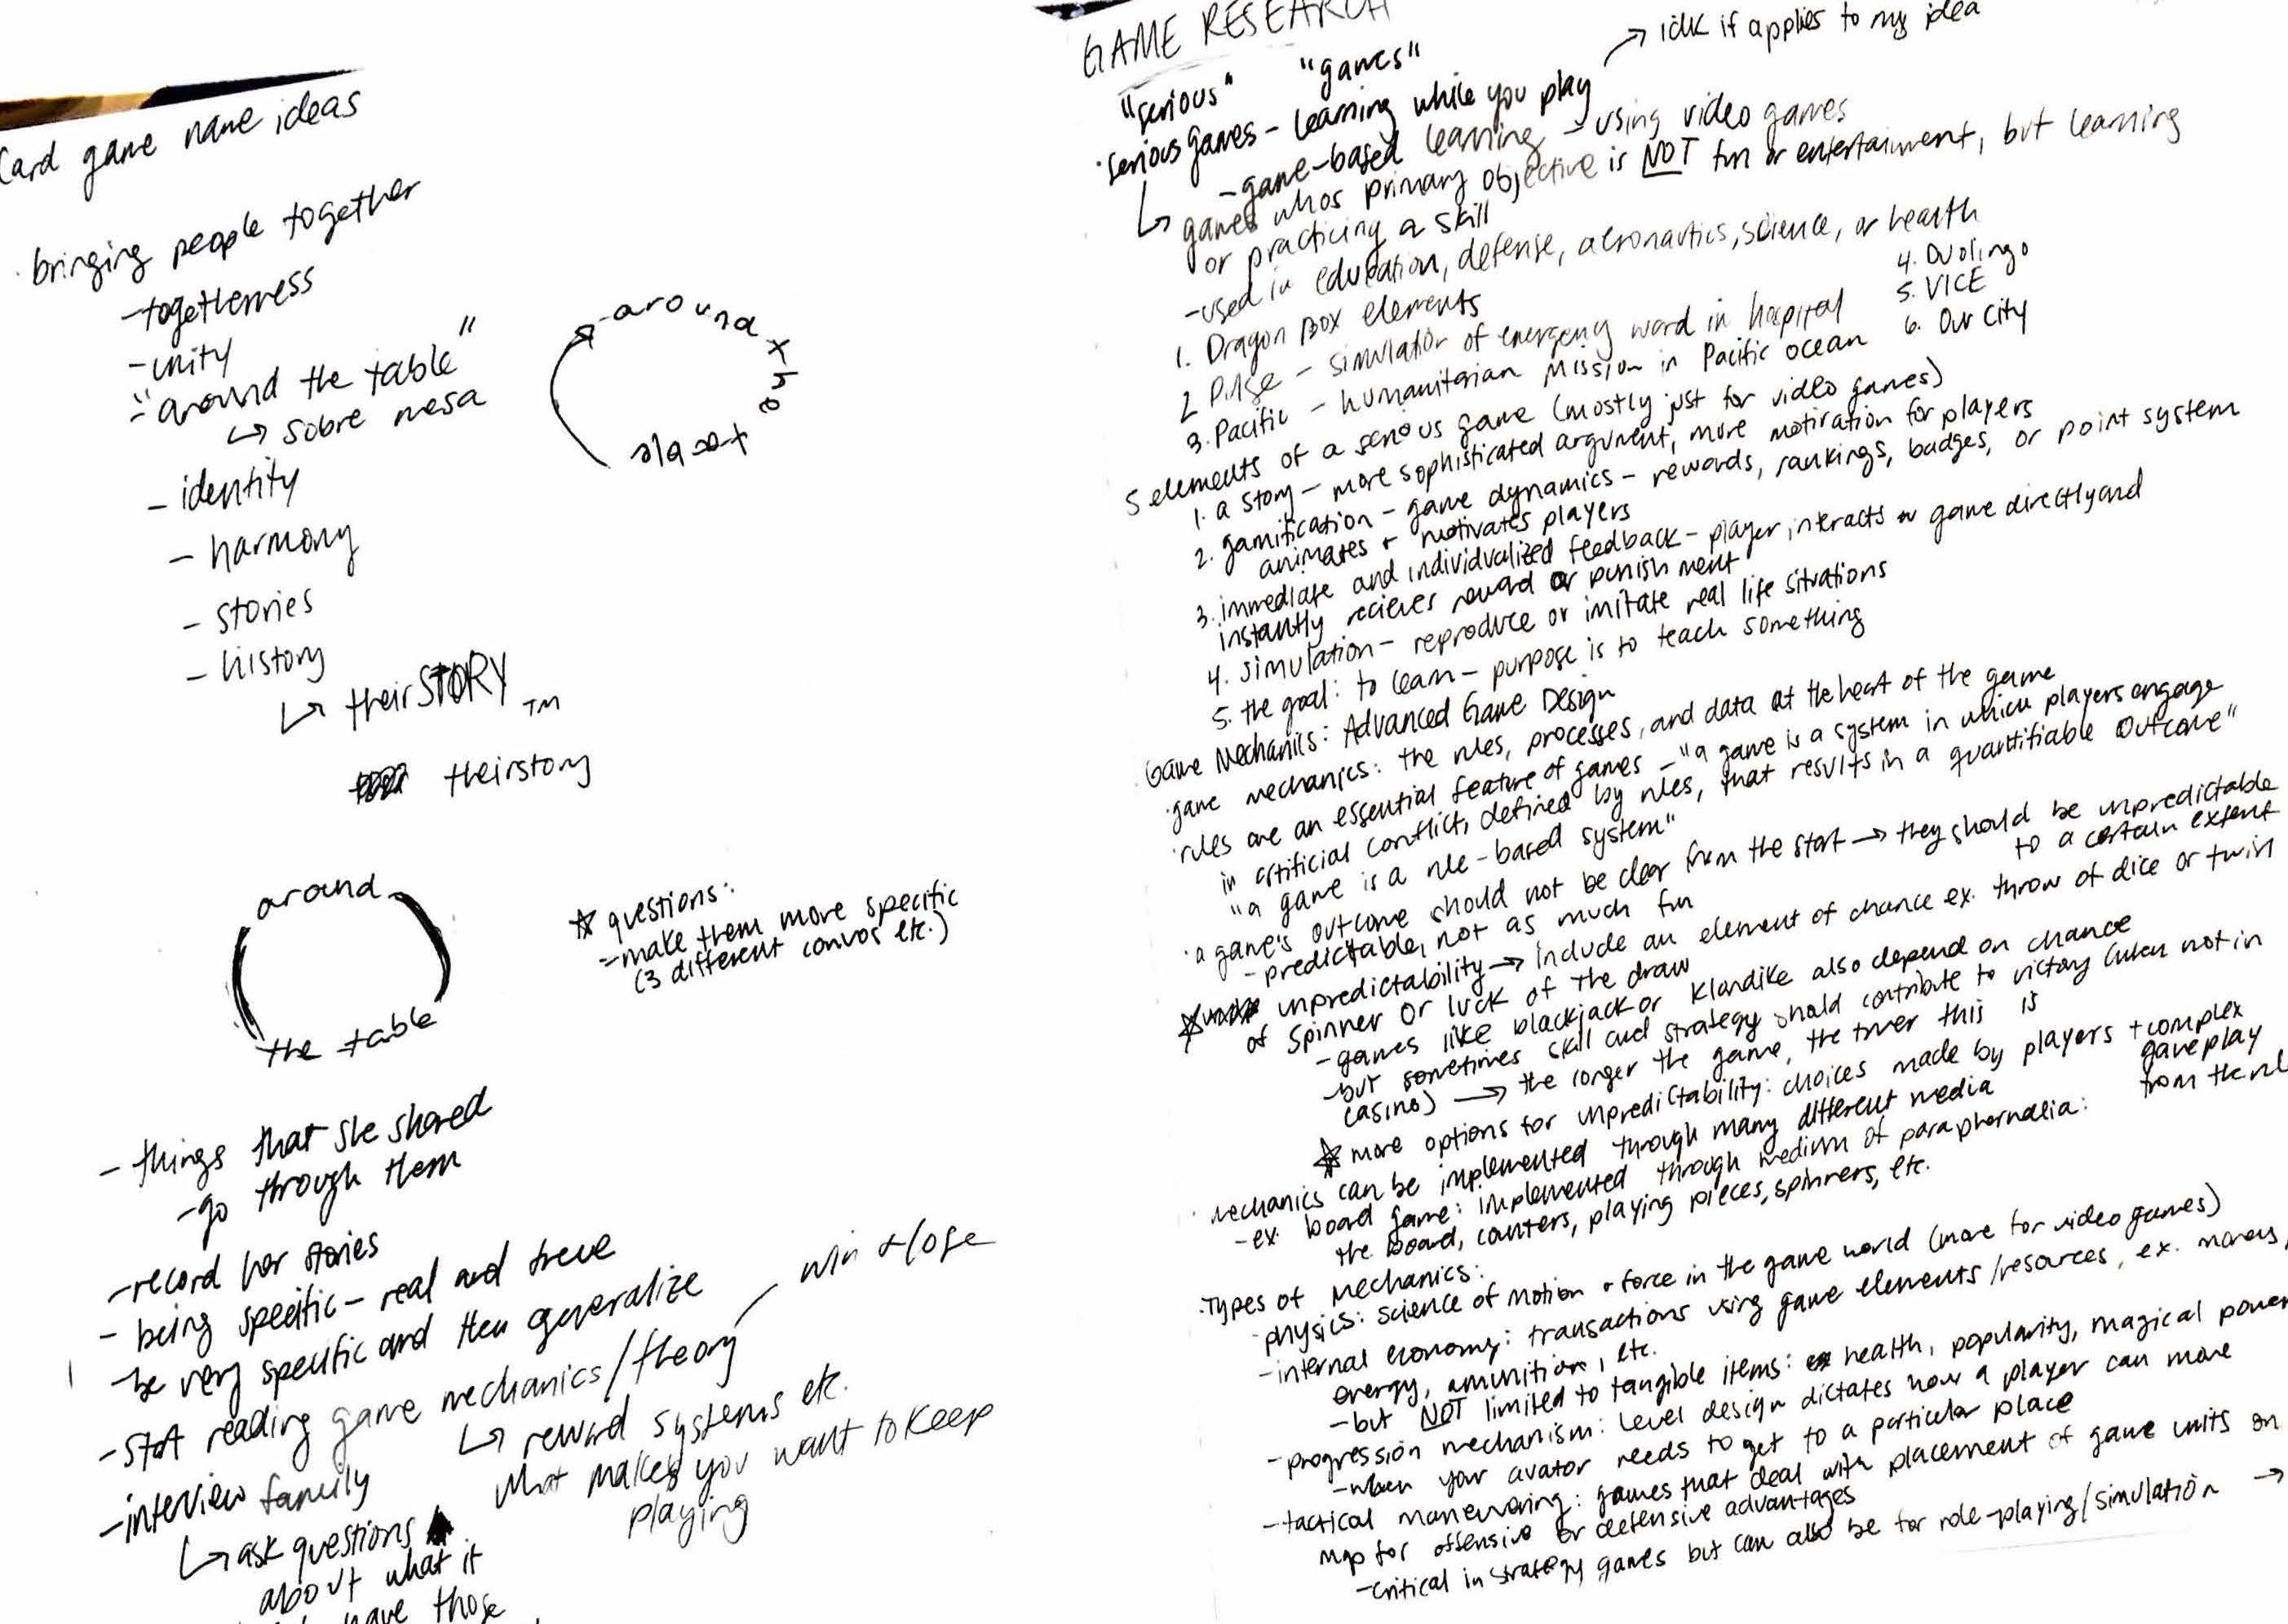 Card game name ideas
· bringing people together
- togetherness
- unity
- "around the table"
↳ sobre mesa
around the table
- identity
- harmony
- stories
- history
↳ theirSTORY TM
theirstory
around
the table
☆ questions:
- make them more specific
(3 different convos etc.)
- things that she shared
- go through them
- record her stories
- being specific - real and true
- be very specific and then generalize
- start reading game mechanics/theory
win + lose
↳ reward systems etc.
what makes you want to keep
playing
- interview family
↳ ask questions
about what it
have those
GAME RESEARCH
"serious" "games"
→ idk if applies to my idea
· serious games - learning while you play
- game-based learning - using video games
↳ games whos primary objective is NOT fun or entertainment, but learning
or practicing a skill
- used in education, defense, aeronautics, science, or health
1. Dragon Box elements
2 Pulse - simulation of emergency word in hospital
3. Pacific - humanitarian mission in Pacific ocean
4. Duolingo
5. VICE
6. Our City
5 elements of a serious game (mostly just for video games)
1. a story - more sophisticated argument, more motivation for players
2. gamification - game dynamics - rewards, rankings, badges, or point system
animates + motivates players
3. immediate and individualized feedback - player interacts w game directly and
instantly recieves reward or punishment
4. simulation - reproduce or imitate real life situations
5. the goal: to learn - purpose is to teach something
Game Mechanics: Advanced Game Design
· game mechanics: the rules, processes, and data at the heart of the game
· rules are an essential feature of games - "a game is a system in which players engage
in artificial conflict, defined by rules, that results in a quantifiable outcome"
"a game is a rule-based system"
· a game's outcome should not be clear from the start → they should be unpredictable
to a certain extent
- predictable, not as much fun
☆ unpredictability → include an element of chance ex. throw of dice or twirl
of spinner or luck of the draw
- games like blackjack or Klondike also depend on chance
- but sometimes skill and strategy should contribute to victory (when not in
casino) → the longer the game, the truer this is
☆ more options for unpredictability: choices made by players + complex
gameplay
from the rul
· mechanics can be implemented through many different media
- ex. board game: implemented through medium of paraphernalia:
the board, counters, playing pieces, spinners, etc.
· Types of mechanics:
· physics: science of motion + force in the game world (more for video games)
- internal economy: transactions using game elements/resources, ex. money,
energy, amunition, etc.
- but NOT limited to tangible items: health, popularity, magical power
- progression mechanism: level design dictates how a player can move
- when your avator needs to get to a particular place
- tactical maneuvering: games that deal with placement of game units on
map for offensive or defensive advantages
- critical in strategy games but can also be for role-playing/simulation →